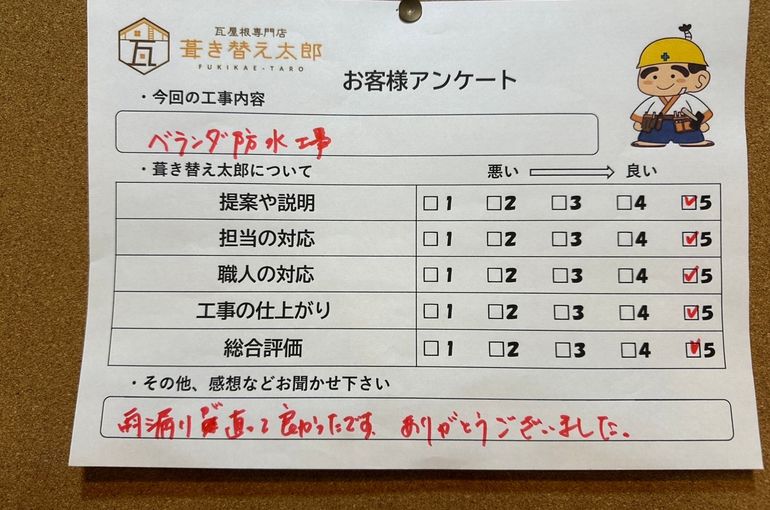 瓦屋根専門店
葺き替え太郎
FUKIKAE-TARO
瓦
お客様アンケート
・今回の工事内容
ベランダ防水工事
・葺き替え太郎について 悪い 良い
提案や説明 □1 □2 □3 □4 ☑5
担当の対応 □1 □2 □3 □4 ☑5
職人の対応 □1 □2 □3 □4 ☑5
工事の仕上がり □1 □2 □3 □4 ☑5
総合評価 □1 □2 □3 □4 ☑5
・その他、感想などお聞かせ下さい
雨漏りが直って良かったです ありがとうございました。